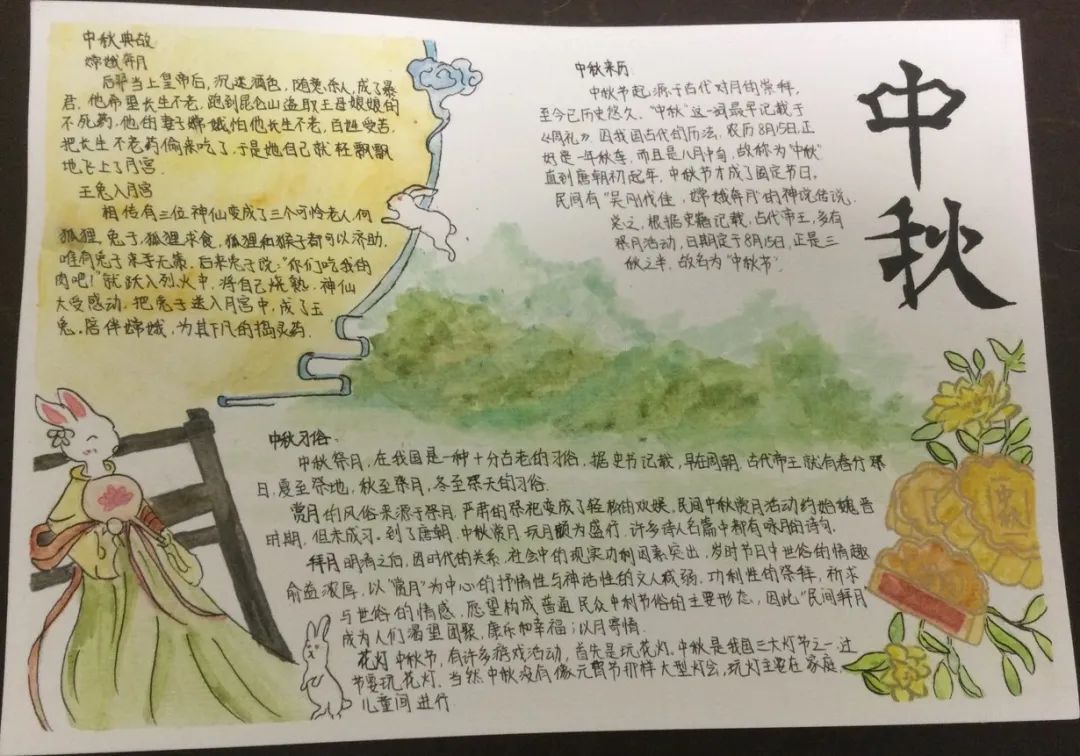 中秋典故
嫦娥奔月
后羿当上皇帝后，沉迷酒色，随意杀人，成了暴
君，他希望长生不老，跑到昆仑山盗取王母娘娘的
不死药，他的妻子嫦娥怕他长生不老，百姓受苦，
把长生不老药偷来吃了，于是她自己就轻飘飘
地飞上了月宫.
玉兔入月宫
相传有三位神仙变成了三个可怜老人，向
狐狸，兔子，狐狸求食，狐狸和猴子都可以济助，
唯有兔子束手无策，后来兔子说："你们吃我的
肉吧！"就跃入烈火中，将自己烧熟，神仙
大受感动，把兔子送入月宫中，成了玉
兔.陪伴嫦娥，为其下凡的捣灵药.
中秋来历.
中秋节起源于古代对月的崇拜，
至今已历史悠久，"中秋"这一词最早记载于
《周礼》，因我国古代的历法，农历8月15日，正
好是一年秋季，而且是八月中旬，故称为"中秋"
直到唐朝初起年，中秋节才成了固定节日，
民间有"吴刚伐佳，嫦娥奔月"的神说传说.
总之，根据史籍记载，古代帝王，多有
祭月活动，日期定于8月15日，正是三
秋之半，故名为"中秋节".
中秋
中秋习俗.
中秋祭月，在我国是一种十分古老的习俗，据史书记载，早在周朝，古代帝王就有春分祭
日，夏至祭地，秋至祭月，冬至祭天的习俗.
赏月的风俗来源于祭月，严肃的祭祀变成了轻松的欢娱，民间中秋赏月活动约始魏晋
时期，但未成习，到了唐朝，中秋赏月、玩月颇为盛行，许多诗人名篇中都有咏月的诗句.
拜月 明清之后，因时代的关系，社会中的现实功利因素突出，岁时节日中世俗的情趣
俞益浓厚，以"赏月"为中心的抒情性与神话性的文人减弱，功利性的祭拜，祈求
与世俗的情感，愿望构成普通民众中秋节俗的主要形态，因此"民间拜月
成为人们渴望团聚，康乐和幸福；以月寄情.
花灯 中秋节，有许多游戏活动，首先是玩花灯.中秋是我国三大灯节之一，过
节要玩花灯，当然中秋没有像元宵节那样大型灯会，玩灯主要在家庭，
儿童间进行.